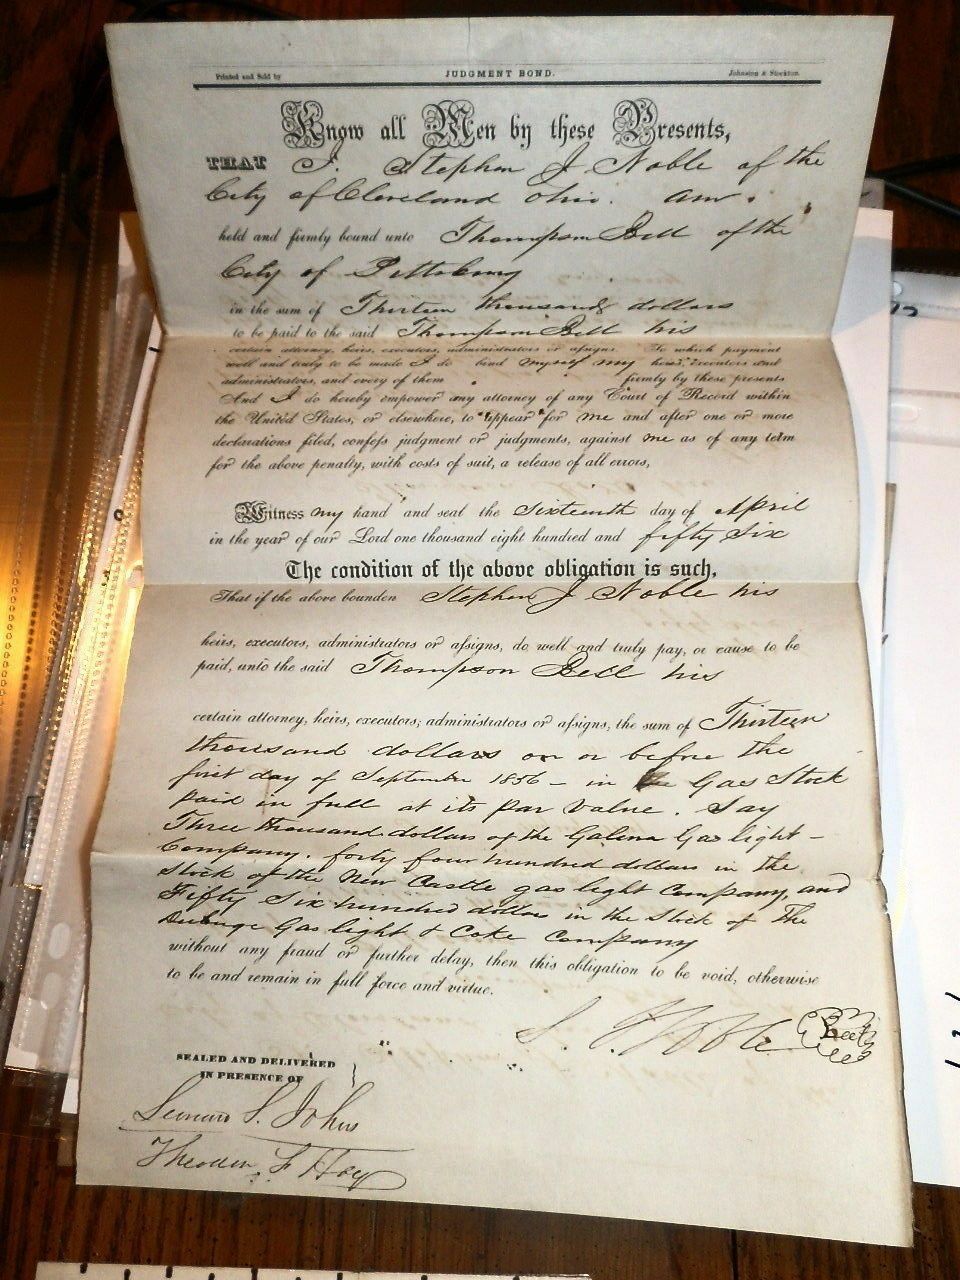 Printed and Sold by JUDGMENT BOND. Johnston & Stockton
Know all Men by these Presents,
THAT I. Stephen J Noble of the
City of Cleveland Ohio. am
held and firmly bound unto Thompson Bell of the
City of Pittsburg
in the sum of Thirteen thousand dollars
to be paid to the said Thompson Bell his
certain attorney, heirs, executors, administrators or assigns To which payment
well and truly to be made I do bind myself my heirs, executors and
administrators, and every of them firmly by these presents
And I do hereby empower any attorney of any Court of Record within
the United States, or elsewhere, to appear for me and after one or more
declarations filed, confess judgment or judgments, against me as of any term
for the above penalty, with costs of suit, a release of all errors,
Witness my hand and seal the Sixteenth day of April
in the year of our Lord one thousand eight hundred and fifty Six
The condition of the above obligation is such,
That if the above bounden Stephen J Noble his
heirs, executors, administrators or assigns, do well and truly pay, or cause to be
paid, unto the said Thompson Bell his
certain attorney, heirs, executors, administrators or assigns, the sum of Thirteen
thousand dollars on or before the
first day of September 1856 - in the Gas Stock
paid in full at its par value. Say
Three thousand dollars of the Galena Gas light -
Company. forty four hundred dollars in the
Stock of the New Castle gas light Company, and
Fifty Six hundred dollars in the Stock of The
Gas light & Coke Company
without any fraud or further delay, then this obligation to be void, otherwise
to be and remain in full force and virtue.
S. J. Noble
SEALED AND DELIVERED
IN PRESENCE OF
S. Johns
F. Hoy